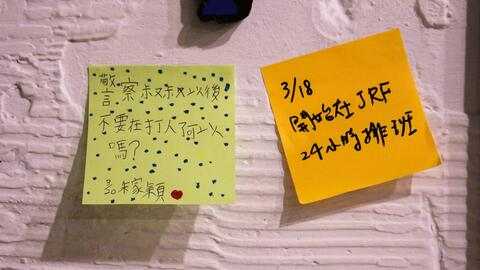 警察叔叔以後
不要在打人了可以
嗎?
穎
3/18
開始在 JRF
24小時排班